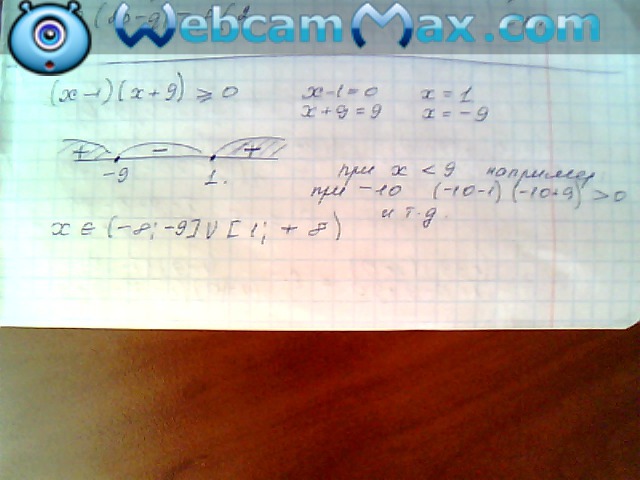 WebcamMax.com
(x-1)(x+9) ≥ 0
x-1=0 x=1
x+9=9 x=-9
+ - +
-9 1.
при x < 9 например
при -10 (-10-1)(-10+9) > 0
и т.д.
x ∈ (-8; -9] U [1; +8)